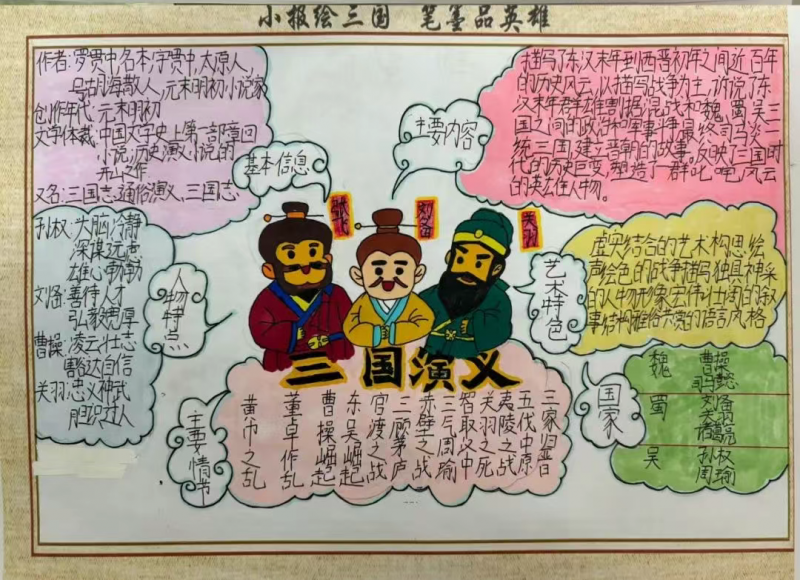 小报绘三国 笔墨品英雄
作者:罗贯中,名本,字贯中,太原人,
号湖海散人,元末明初小说家
创作年代:元末明初
文学体裁:中国文学史上第一部章回
小说,历史演义小说的
开山之作
又名:三国志通俗演义、三国志
基本信息
主要内容
描写了东汉末年到西晋初年之间近百年
的历史风云,以描写战争为主,诉说了东
汉末年群雄割据混战和魏、蜀、吴三
国之间的政治和军事斗争,最终司马炎一
统三国,建立晋朝的故事。反映了三国时
代的历史巨变,塑造了一群叱咤风云
的英雄人物。
孙权:头脑冷静
深谋远虑
雄心勃勃
刘备:善待人才
弘毅宽厚
曹操:凌云壮志
豁达自信
关羽:忠义神武
胆识过人
人物特点
张飞
刘备
关羽
艺术特色
虚实结合的艺术构思、绘
声绘色的战争描写、独具神采
的人物形象、宏伟壮阔的叙
事结构、雅俗共赏的语言风格
三国演义
主要情节
三家归晋
五伐中原
夷陵之战
关羽之死
智取汉中
三气周瑜
赤壁之战
三顾茅庐
官渡之战
东吴崛起
曹操崛起
董卓作乱
黄巾之乱
国家
魏 曹操
司马懿
蜀 刘备
关羽
诸葛亮
吴 孙权
周瑜